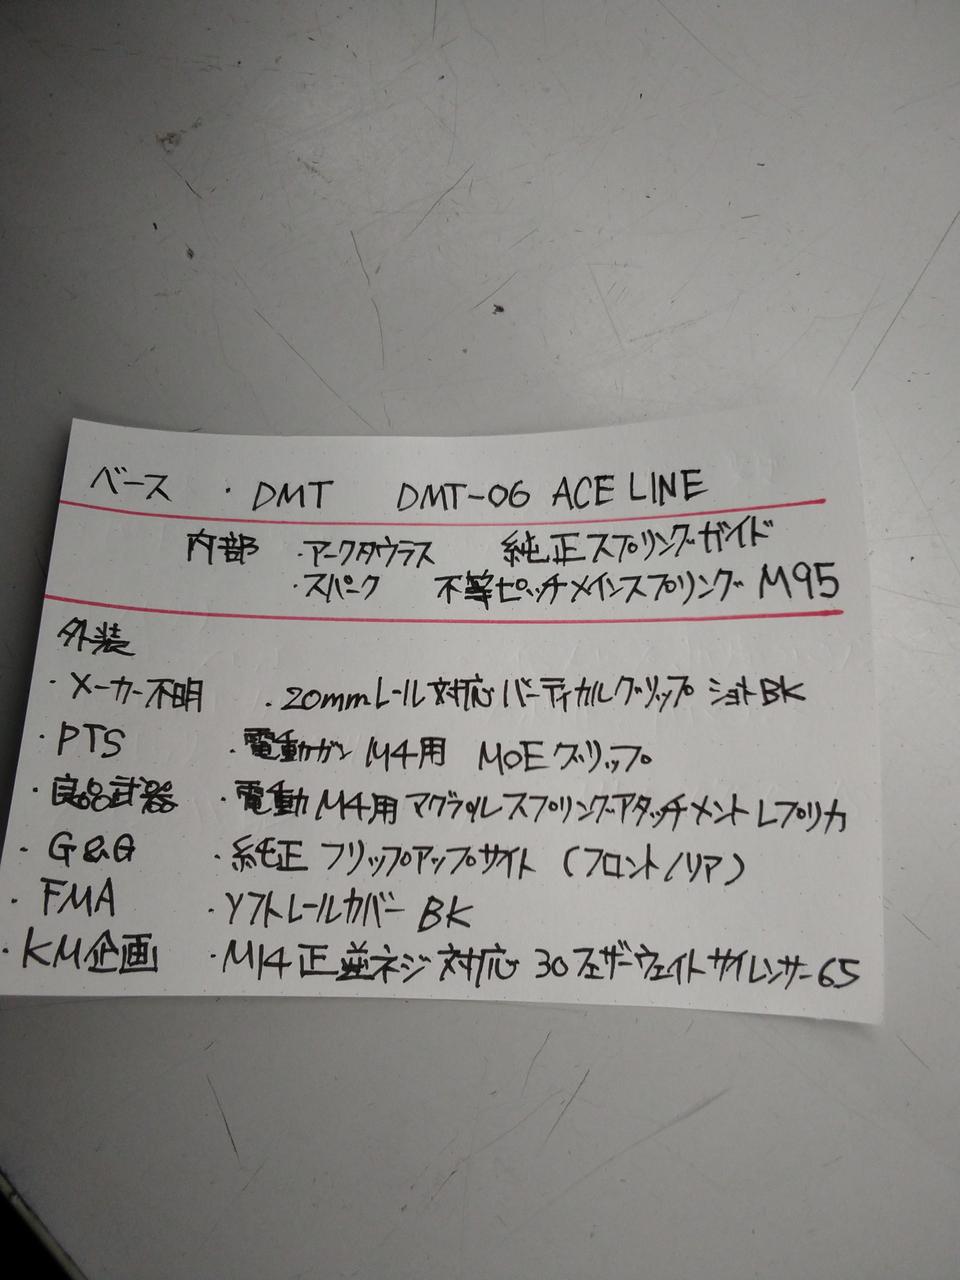 ベース ・DMT DMT-06 ACE LINE
内部 ・アークタウラス 純正スプリングガイド
・スパーク 不等ピッチメインスプリング M95
外装
・メーカー不明 ・20mmレール対応バーティカルグリップ ショートBK
・PTS ・電動ガン M4用 MOEグリップ
・良品武器 ・電動M4用マグプルスプリングアタッチメントレプリカ
・G&G ・純正フリップアップサイト (フロント/リア)
・FMA ・ソフトレールカバー BK
・KM企画 ・M14正逆ネジ対応 30フェザーウェイトサイレンサー65